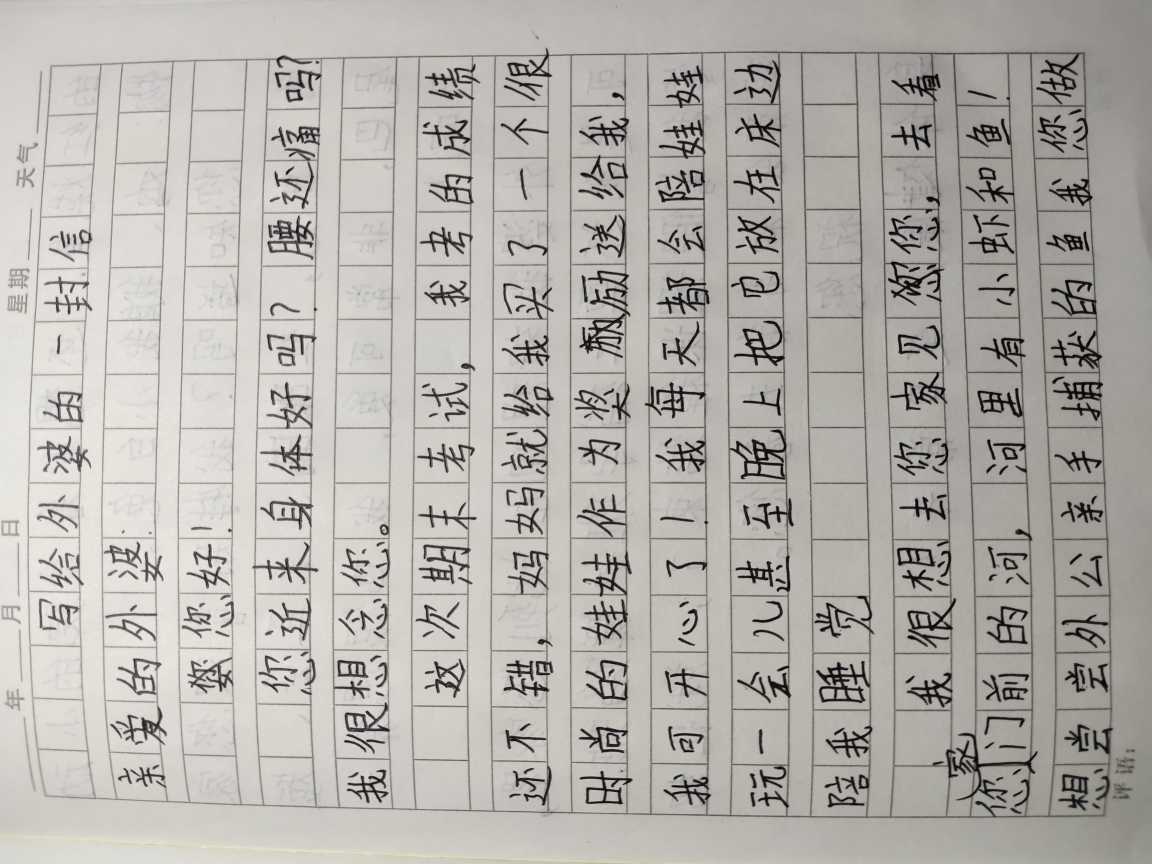 年 月 日 星期 天气
写给外婆的一封信
亲爱的外婆:
您好!
您近来身体好吗?腰还痛吗?
我很想念您。
这次期末考试,我考的成绩
还不错,妈妈就给我买了一个很
时尚的娃娃作为奖励送给我,
我可开心了!我每天都会陪娃娃
玩一会儿甚至晚上把它放在床边
陪我睡党
我很想去您家见您,去看
您家门前的河,河里有小虾和鱼!
想尝尝外公亲手捕获的鱼我您做
评语: